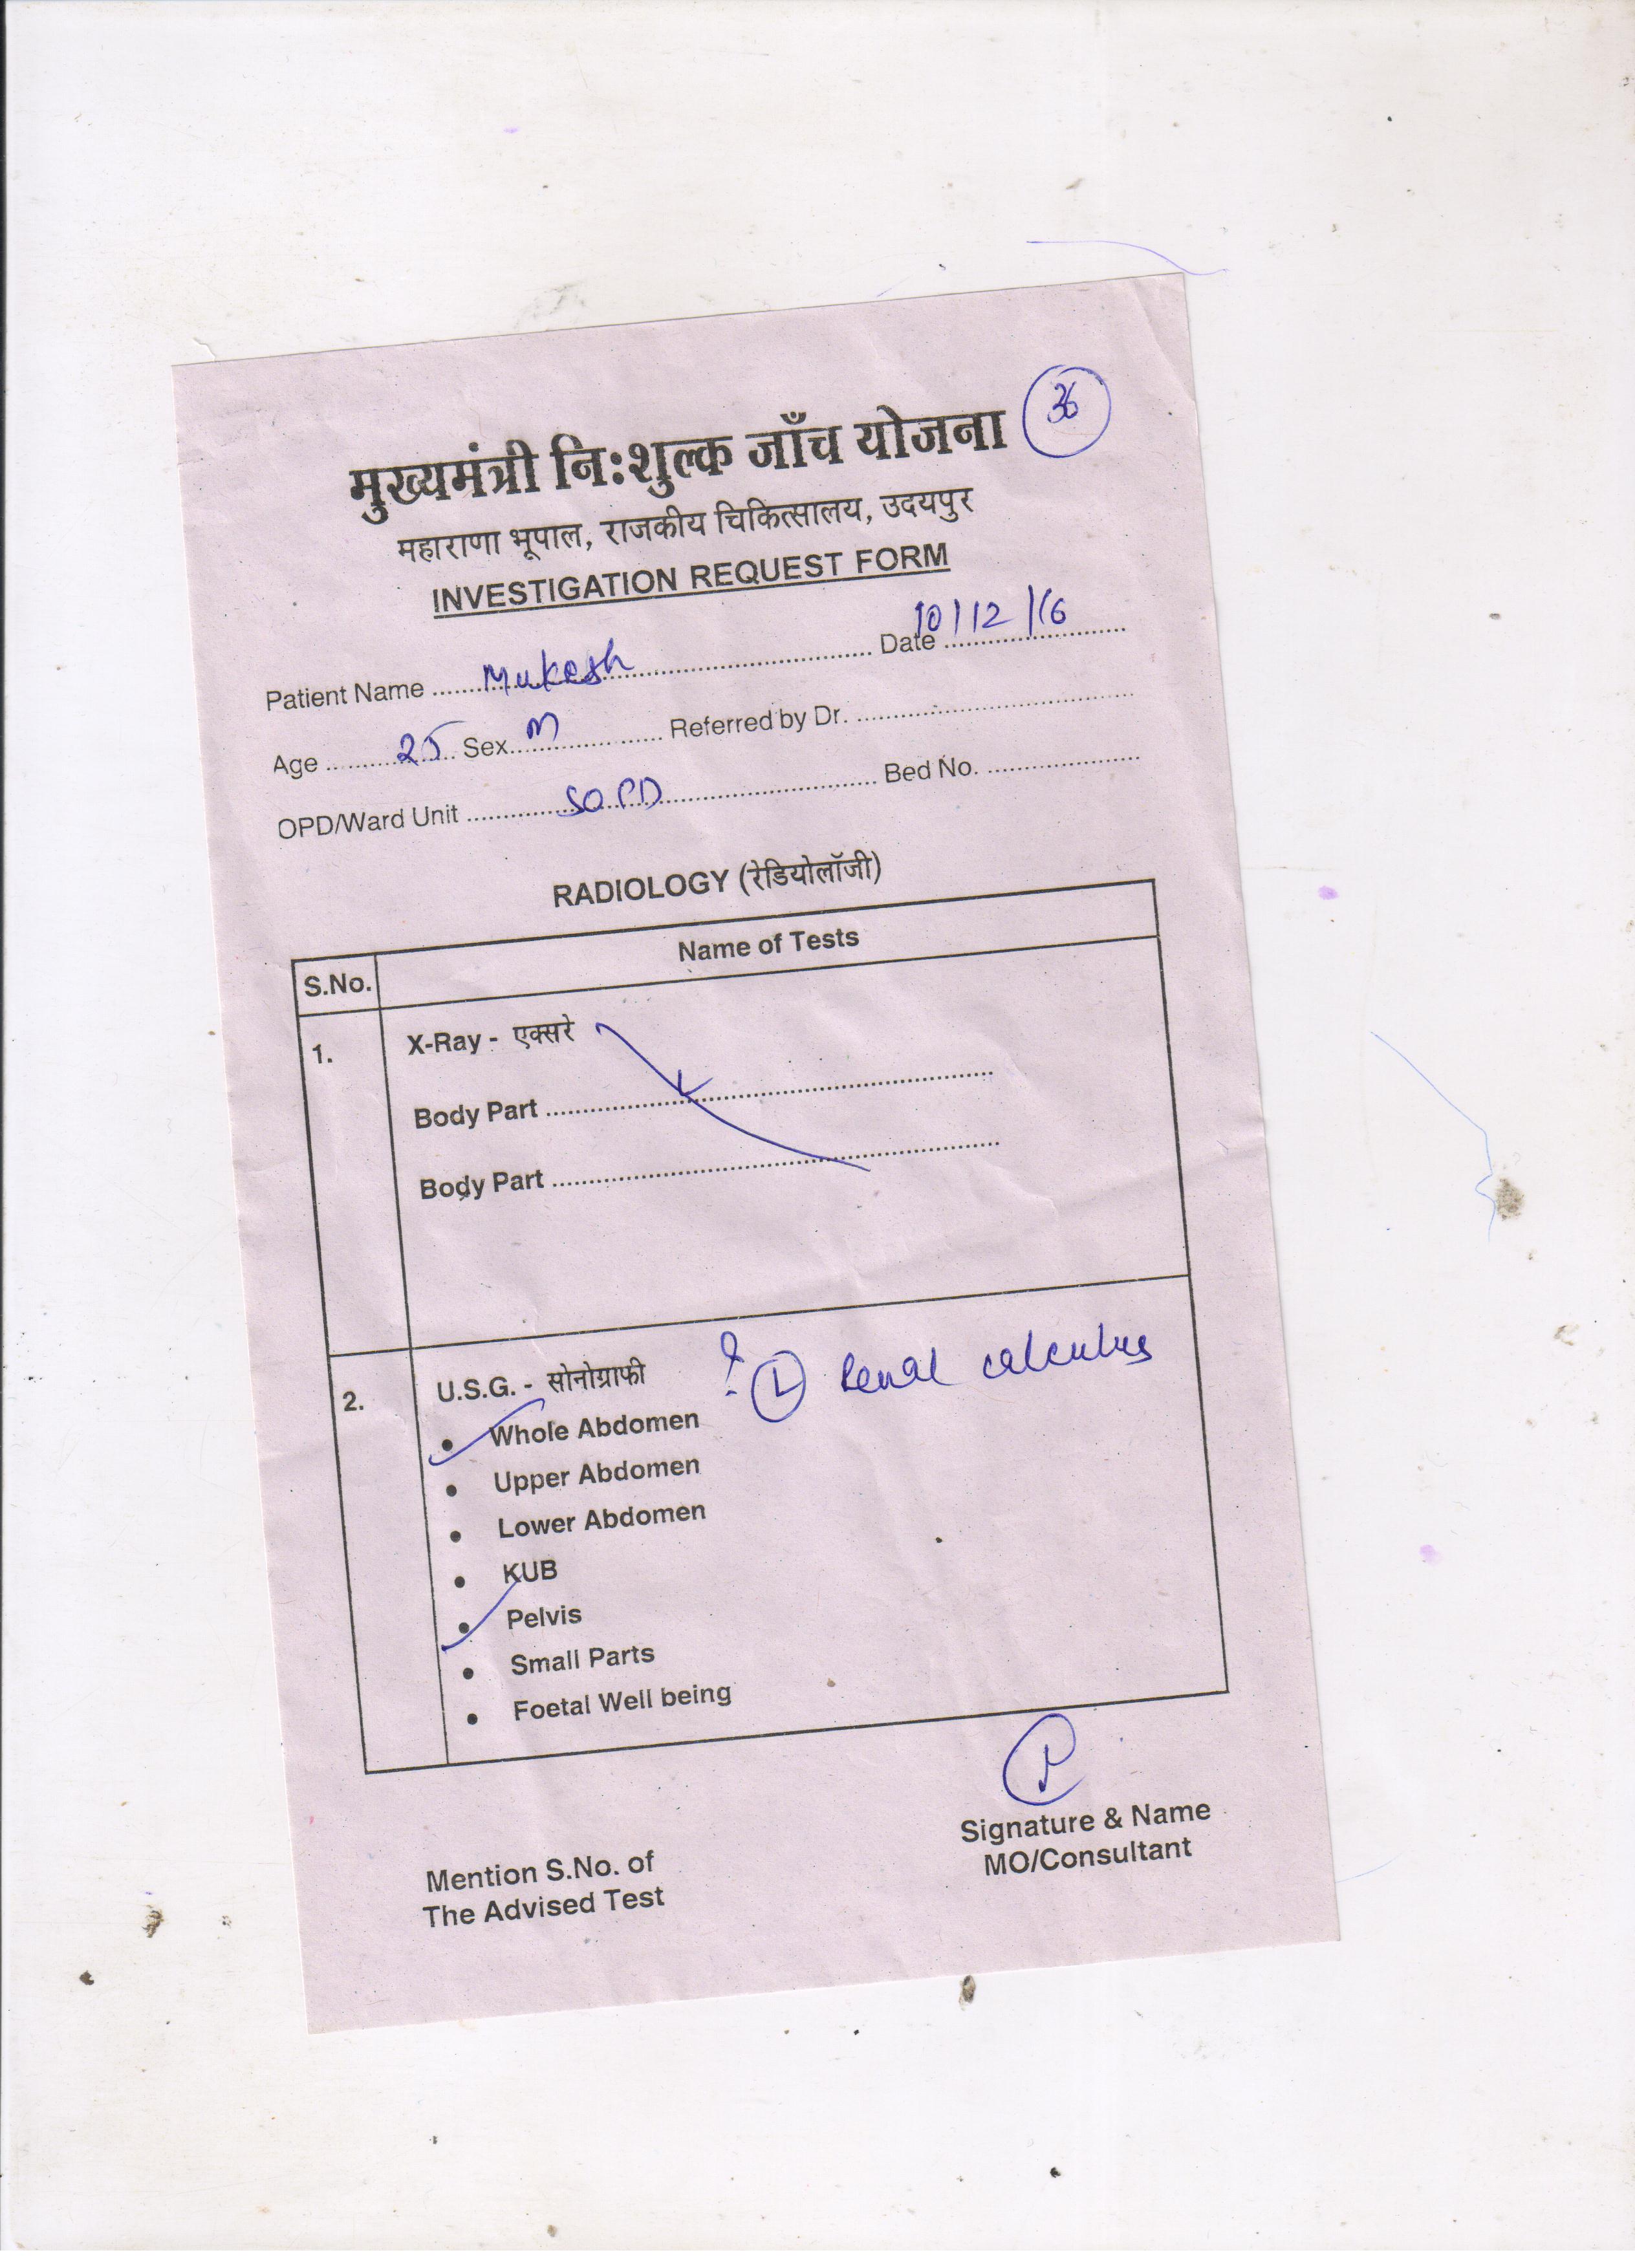 36
मुख्यमंत्री निःशुल्क जाँच योजना
महाराणा भूपाल, राजकीय चिकित्सालय, उदयपुर
INVESTIGATION REQUEST FORM
Patient Name Mukesh Date 10/12/16
Age 25 Sex M Referred by Dr.
OPD/Ward Unit SOPD Bed No.
RADIOLOGY (रेडियोलॉजी)
S.No. Name of Tests
1. X-Ray - एक्सरे
Body Part
Body Part
2. U.S.G. - सोनोग्राफी ? L Renal calculus
• Whole Abdomen
• Upper Abdomen
• Lower Abdomen
• KUB
• Pelvis
• Small Parts
• Foetal Well being
Signature & Name
MO/Consultant
Mention S.No. of
The Advised Test